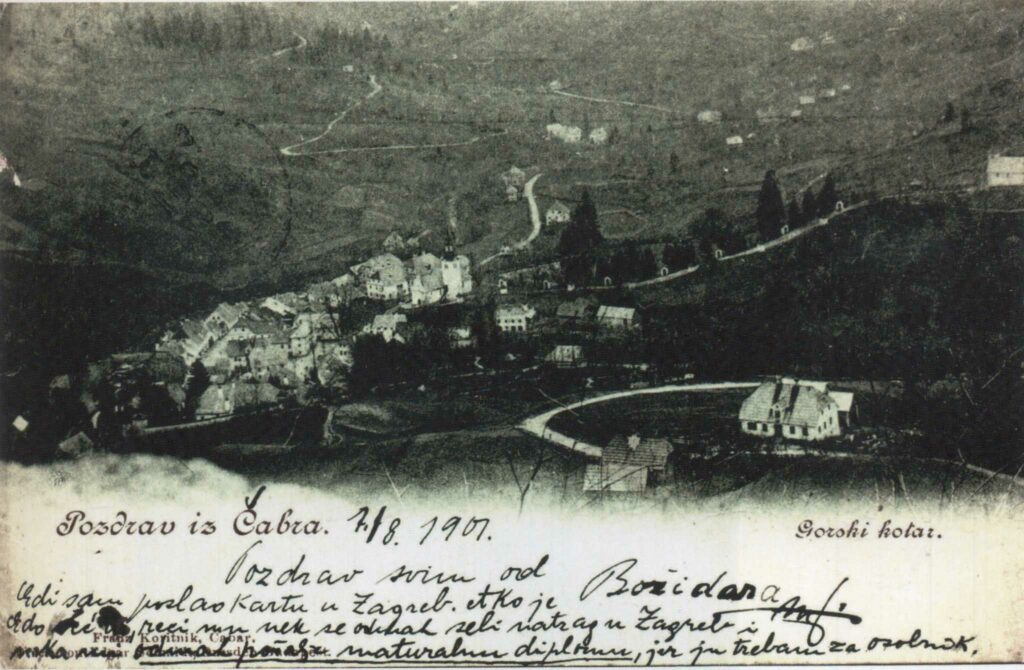 Pozdrav iz Čabra. 7/8. 1901.
Gorski kotar.
Pozdrav svim od Božidara
Edi sam poslao kartu u Zagreb. Ako je
Edo reci mu nek se odmah seli natrag u Zagreb i
neka mi odmah pošalje maturalnu diplomu, jer ju trebam za
Franz Koritnik, Čabar.